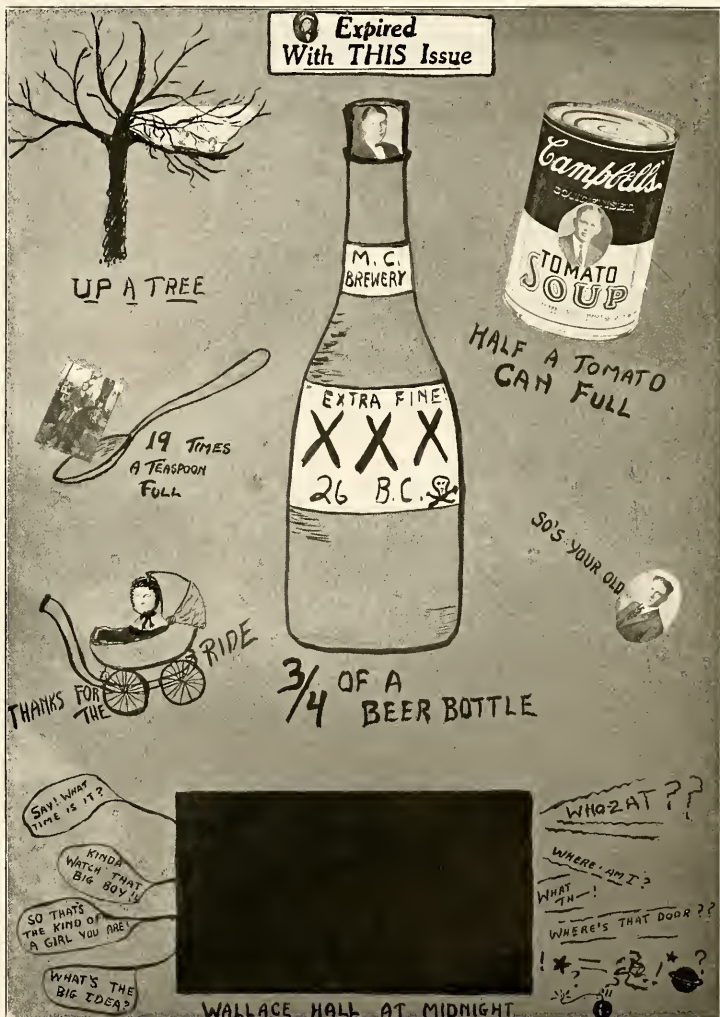 Expired
With THIS Issue
UP A TREE
M. C.
BREWERY
Campbell's
CONDENSED
TOMATO
SOUP
HALF A TOMATO
CAN FULL
19 TIMES
A TEASPOON
FULL
"EXTRA FINE"
XXX
26 B.C.
SO'S YOUR OLD
THANKS FOR
THE
RIDE
3/4 OF A
BEER BOTTLE
SAY! WHAT
TIME IS IT?
KINDA
WATCH THAT
BIG BOY!!
SO THAT'S
THE KIND OF
A GIRL YOU ARE!
WHAT'S THE
BIG IDEA?
WHO-Z AT ??
WHERE AM I?
WHAT
TH—!
WHERE'S THAT DOOR ??
WALLACE HALL AT MIDNIGHT